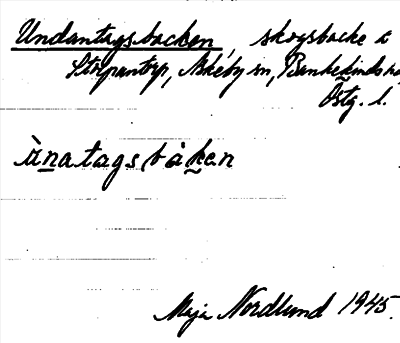 Undantagsbacken, skogsbacke å
Storpantorp, Askeby sn, Bankekinds hd
Östg. l.
ùnatagsbàken
Maja Nordlund 1945.